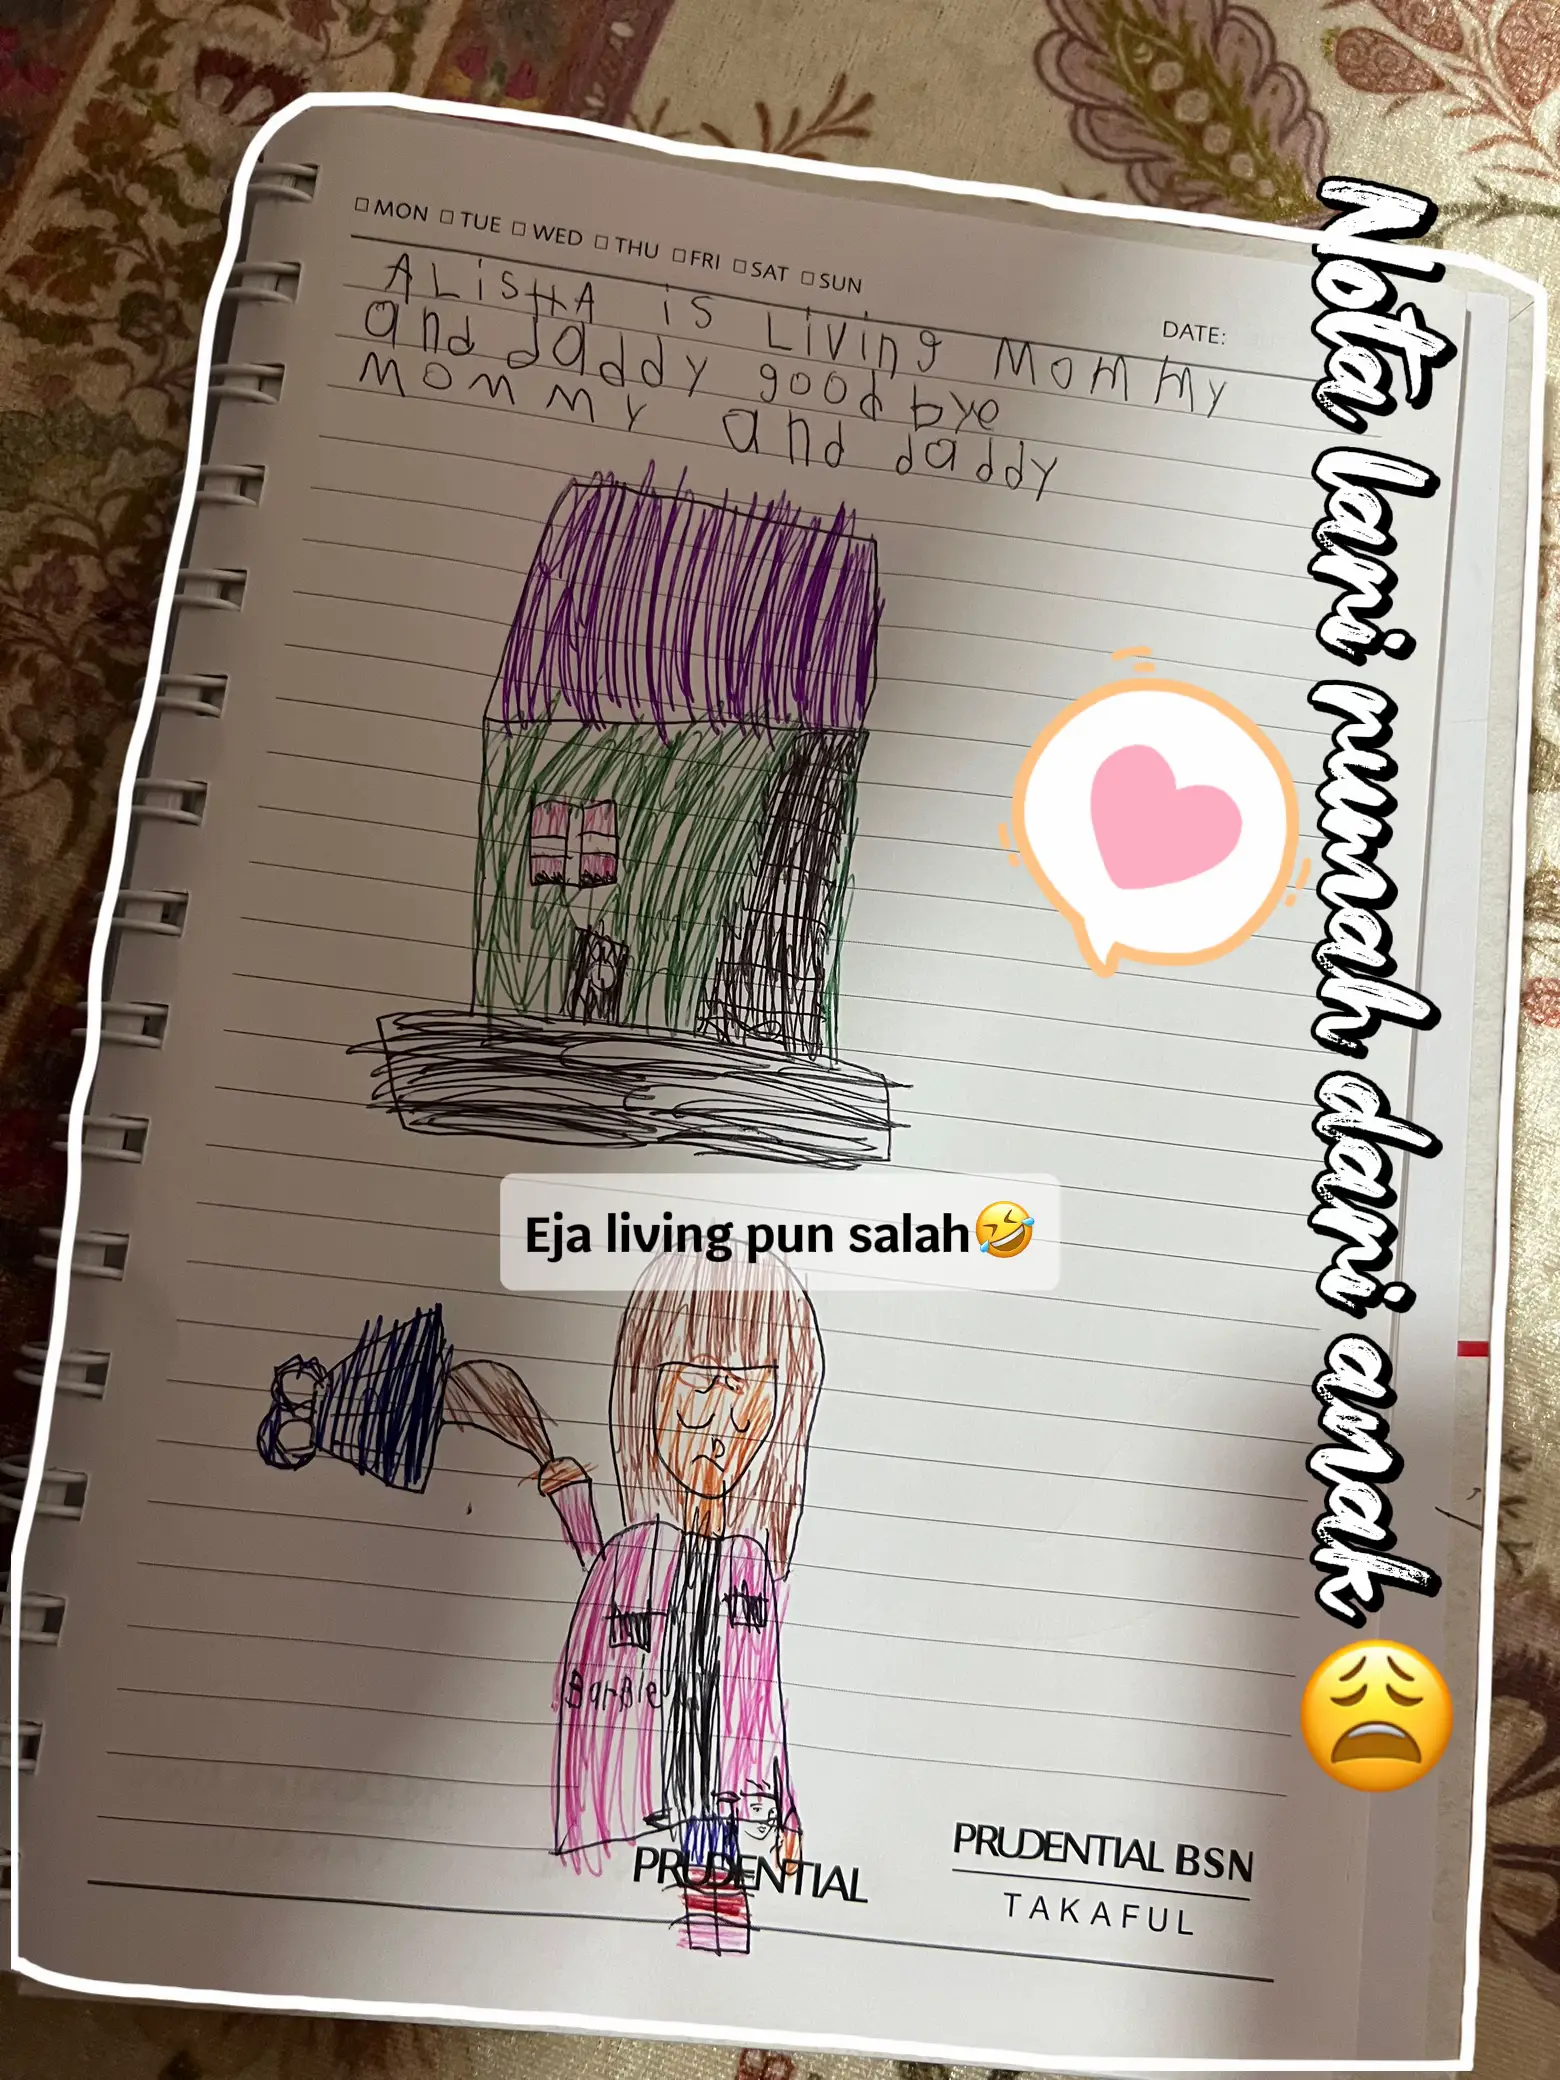 MON TUE WED THU FRI SAT SUN
DATE:
ALiSHA is Living MoMMy
and daddy goodbye
MOMMY and daddy
Nota lari rumah dari anak 😩
Eja living pun salah🤣
BarBie
PRUDENTIAL
PRUDENTIAL BSN
TAKAFUL